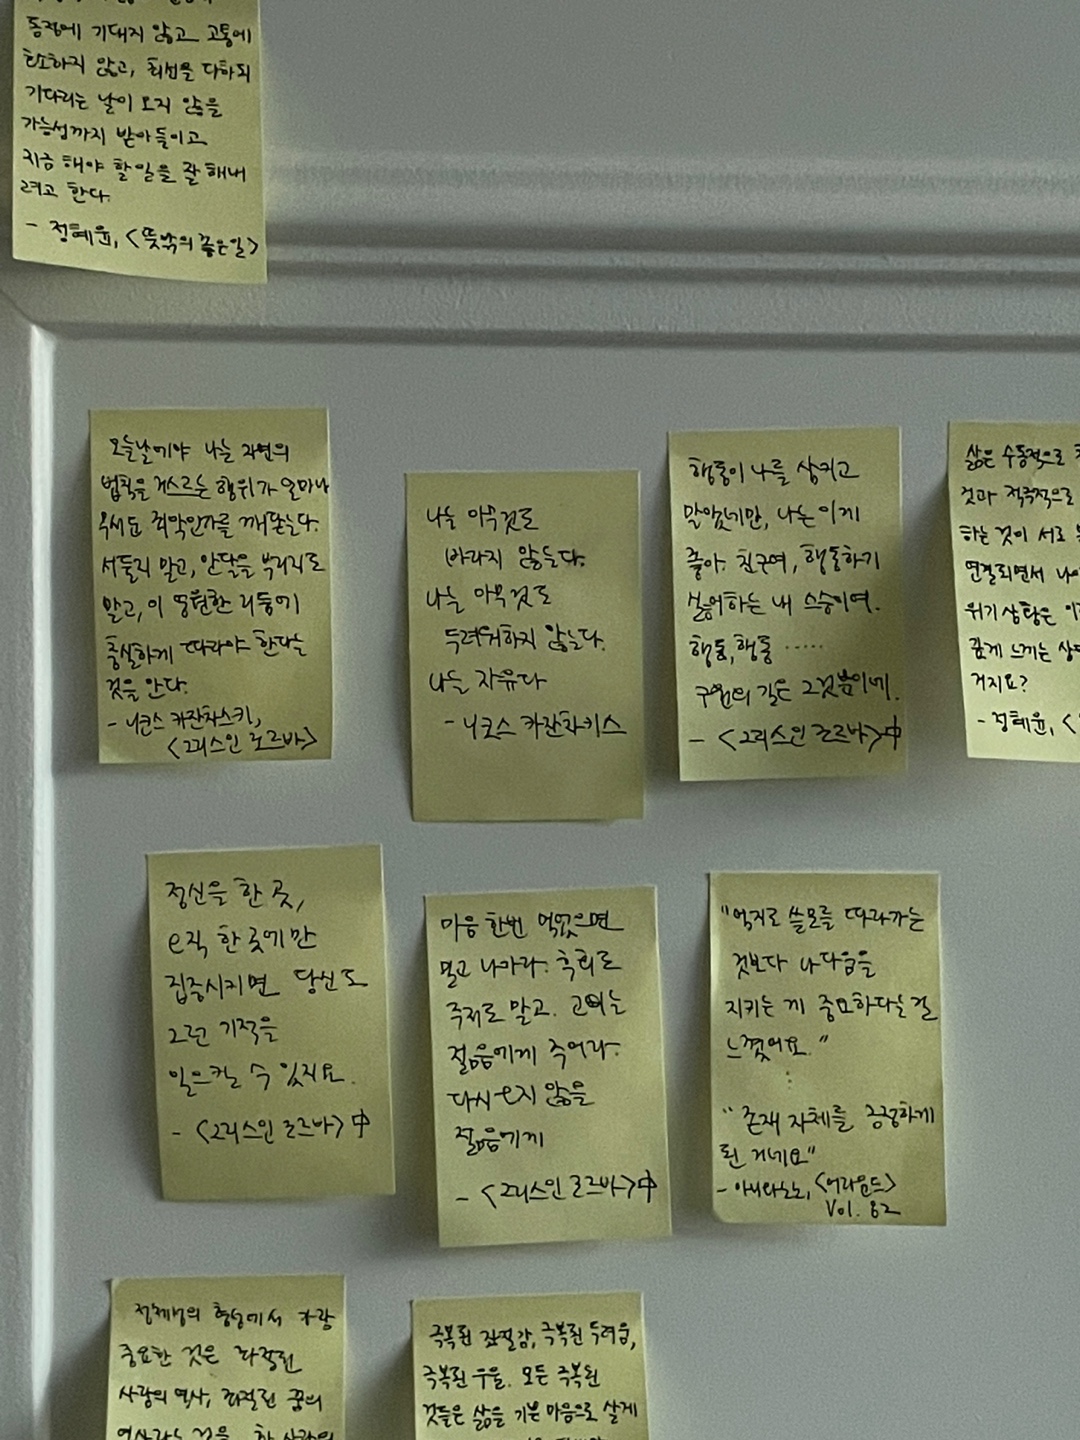 동정에 기대지 않고 고통에
탄소하지 않고, 최선을 다하되
기다리는 날이 오지 않을
가능성까지 받아들이고
지금 해야 할 일을 잘 해내
려고 한다.
- 정혜윤, <뜻밖의 좋은 일>
오늘날에야 나는 자연의
법칙을 거스르는 행위가 얼마나
무서운 죄악인가를 깨닫는다.
서둘지 말고, 안달을 부리지도
말고, 이 영원한 리듬에
충실하게 따라야 한다는
것을 안다.
- 니코스 카잔차스키,
<그리스인 조르바>
나는 아무것도
바라지 않는다.
나는 아무것도
두려워하지 않는다.
나는 자유다
- 니코스 카잔차키스
행동이 나를 삼키고
말았네만, 나는 이게
좋아. 친구여, 행동하기
싫어하는 내 스승이여.
행동, 행동 ......
구원의 길은 그것뿐이네.
- <그리스인 조르바> 中
삶은 수동적으로
것과 적극적으로
하는 것이 서로
연결되면서
위기 상황은
깊게 느끼는
거지요?
- 정혜윤, <
정신을 한 곳,
오직 한 곳에만
집중시키면 당신도
그런 기적을
일으킬 수 있지요.
- <그리스인 조르바> 中
마음 한번 먹었으면
밀고 나아가라. 후회도
주저도 말고. 고삐는
젊음에게 주어라.
다시 오지 않을
젊음에게
- <그리스인 조르바> 中
"억지로 쓸모를 따라가는
것보다 나다움을
지키는 게 중요하다는 걸
느꼈어요."
⋮
"존재 자체를 긍정하게
된 거네요"
<어라운드>
Vol. 82
정체성의 형성에서 가장
중요한 것은 좌절된
사랑의 역사, 좌절된 꿈의
극복된 좌절감, 극복된 두려움,
극복된 우울. 모든 극복된
것들은 삶을 기쁜 마음으로 살게